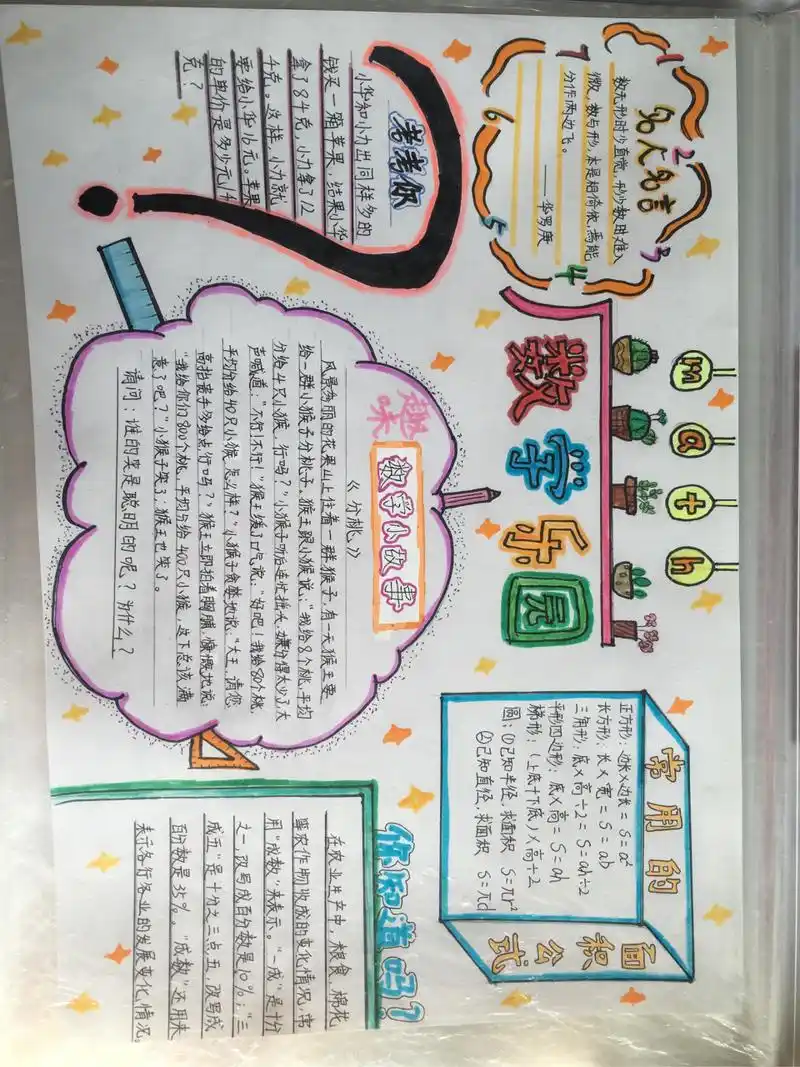 math
数学乐园
名人名言
数无形时少直觉，形少数时难入
微，数与形，本是相倚依，焉能
分作两边飞。
——华罗庚
1
2
3
4
5
6
7
考考你
小华和小力出同样多的
钱买一箱苹果，结果小华
拿了8千克，小力拿了12
千克。这样，小力就
要给小华16元。苹果
的单价是多少元/千
克？
趣味
数学小故事
《分桃》
风景秀丽的花果山上住着一群猴子，有一天猴王要
给一群小猴子分桃子。猴王跟小猴说：“我给8个桃，平均
分给4只小猴，行吗？”小猴子听后连忙摇头，嫌分得太少了，大
声喊道：“不行！不行！”猴王缓了口气说：“好吧！我给80个桃，
平均分给40只小猴，怎么样？”小猴子贪婪地说：“大王，请您
高抬贵手多给点行吗？”猴王立即拍着胸脯，慷慨地说：
“我给你们800个桃，平均分给400只小猴，这下总该满
意了吧？”小猴子笑了；猴王也笑了。
请问：谁的笑是聪明的呢？为什么？
常用的
面积公式
正方形：边长×边长=S=a²
长方形：长×宽=S=ab
三角形：底×高÷2=S=ah÷2
平形四边形：底×高=S=ah
梯形：（上底+下底）×高÷2
圆：①已知半径，求面积 S=πr²
②已知直径，求面积 S=πd
你知道吗？
在农业生产中，粮食、棉花
等农作物收成的变化情况，常
用“成数”来表示。“一成”是十分
之一，改写成百分数是10%；“三
成五”是十分之三点五，改写成
百分数是35%。“成数”还用来
表示各行各业的发展变化情况。